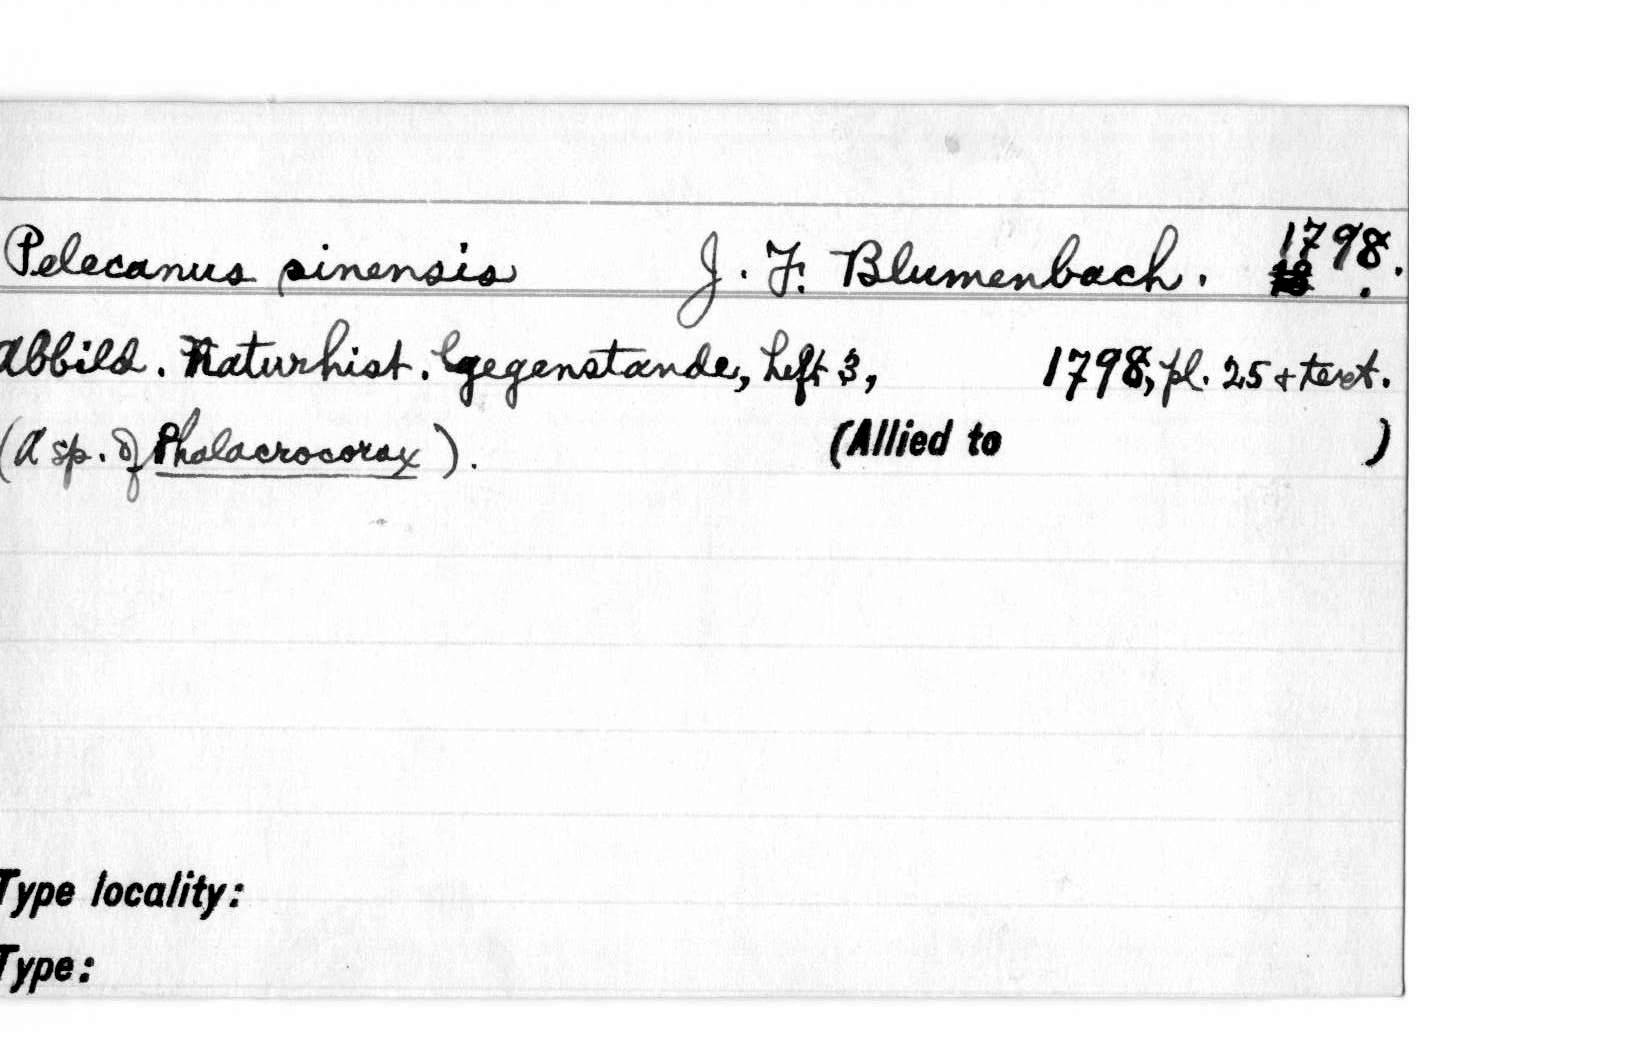 Pelecanus sinensis J. F. Blumenbach. 1798.
Abbild. Naturhist. Gegenstande, heft 3, 1798, pl. 25 + text.
(A sp. of Phalacrocorax). (Allied to )
Type locality:
Type: